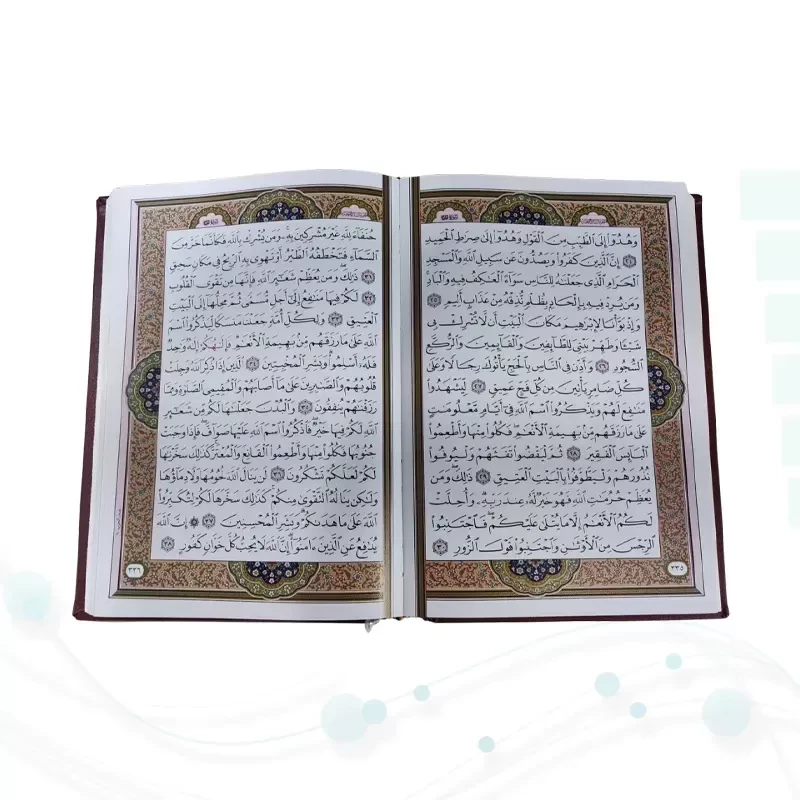 وَهُدُوٓا۟ إِلَى ٱلطَّيِّبِ مِنَ ٱلْقَوْلِ وَهُدُوٓا۟ إِلَىٰ صِرَٰطِ ٱلْحَمِيدِ
۝٢٤ إِنَّ ٱلَّذِينَ كَفَرُوا۟ وَيَصُدُّونَ عَن سَبِيلِ ٱللَّهِ وَٱلْمَسْجِدِ
ٱلْحَرَامِ ٱلَّذِى جَعَلْنَٰهُ لِلنَّاسِ سَوَآءً ٱلْعَٰكِفُ فِيهِ وَٱلْبَادِ ۚ
وَمَن يُرِدْ فِيهِ بِإِلْحَادٍۭ بِظُلْمٍ نُّذِقْهُ مِنْ عَذَابٍ أَلِيمٍ ۝٢٥
وَإِذْ بَوَّأْنَا لِإِبْرَٰهِيمَ مَكَانَ ٱلْبَيْتِ أَن لَّا تُشْرِكْ بِى
شَيْـًٔا وَطَهِّرْ بَيْتِىَ لِلطَّآئِفِينَ وَٱلْقَآئِمِينَ وَٱلرُّكَّعِ
ٱلسُّجُودِ ۝٢٦ وَأَذِّن فِى ٱلنَّاسِ بِٱلْحَجِّ يَأْتُوكَ رِجَالًا وَعَلَىٰ
كُلِّ ضَامِرٍ يَأْتِينَ مِن كُلِّ فَجٍّ عَمِيقٍ ۝٢٧ لِّيَشْهَدُوا۟
مَنَٰفِعَ لَهُمْ وَيَذْكُرُوا۟ ٱسْمَ ٱللَّهِ فِىٓ أَيَّامٍ مَّعْلُومَٰتٍ
عَلَىٰ مَا رَزَقَهُم مِّنۢ بَهِيمَةِ ٱلْأَنْعَٰمِ ۖ فَكُلُوا۟ مِنْهَا وَأَطْعِمُوا۟
ٱلْبَآئِسَ ٱلْفَقِيرَ ۝٢٨ ثُمَّ لْيَقْضُوا۟ تَفَثَهُمْ وَلْيُوفُوا۟
نُذُورَهُمْ وَلْيَطَّوَّفُوا۟ بِٱلْبَيْتِ ٱلْعَتِيقِ ۝٢٩ ذَٰلِكَ وَمَن
يُعَظِّمْ حُرُمَٰتِ ٱللَّهِ فَهُوَ خَيْرٌ لَّهُۥ عِندَ رَبِّهِۦ ۗ وَأُحِلَّتْ
لَكُمُ ٱلْأَنْعَٰمُ إِلَّا مَا يُتْلَىٰ عَلَيْكُمْ ۖ فَٱجْتَنِبُوا۟
ٱلرِّجْسَ مِنَ ٱلْأَوْثَٰنِ وَٱجْتَنِبُوا۟ قَوْلَ ٱلزُّورِ ۝٣٠
٣٣٥
حُنَفَآءَ لِلَّهِ غَيْرَ مُشْرِكِينَ بِهِۦ ۚ وَمَن يُشْرِكْ بِٱللَّهِ فَكَأَنَّمَا خَرَّ مِنَ
ٱلسَّمَآءِ فَتَخْطَفُهُ ٱلطَّيْرُ أَوْ تَهْوِى بِهِ ٱلرِّيحُ فِى مَكَانٍ سَحِيقٍ
۝٣١ ذَٰلِكَ وَمَن يُعَظِّمْ شَعَٰٓئِرَ ٱللَّهِ فَإِنَّهَا مِن تَقْوَى ٱلْقُلُوبِ
۝٣٢ لَكُمْ فِيهَا مَنَٰفِعُ إِلَىٰٓ أَجَلٍ مُّسَمًّى ثُمَّ مَحِلُّهَآ إِلَى ٱلْبَيْتِ
ٱلْعَتِيقِ ۝٣٣ وَلِكُلِّ أُمَّةٍ جَعَلْنَا مَنسَكًا لِّيَذْكُرُوا۟ ٱسْمَ
ٱللَّهِ عَلَىٰ مَا رَزَقَهُم مِّنۢ بَهِيمَةِ ٱلْأَنْعَٰمِ ۗ فَإِلَٰهُكُمْ إِلَٰهٌ وَٰحِدٌ
فَلَهُۥٓ أَسْلِمُوا۟ ۗ وَبَشِّرِ ٱلْمُخْبِتِينَ ۝٣٤ ٱلَّذِينَ إِذَا ذُكِرَ ٱللَّهُ وَجِلَتْ
قُلُوبُهُمْ وَٱلصَّٰبِرِينَ عَلَىٰ مَآ أَصَابَهُمْ وَٱلْمُقِيمِى ٱلصَّلَوٰةِ وَمِمَّا
رَزَقْنَٰهُمْ يُنفِقُونَ ۝٣٥ وَٱلْبُدْنَ جَعَلْنَٰهَا لَكُم مِّن شَعَٰٓئِرِ
ٱللَّهِ لَكُمْ فِيهَا خَيْرٌ ۖ فَٱذْكُرُوا۟ ٱسْمَ ٱللَّهِ عَلَيْهَا صَوَآفَّ ۖ فَإِذَا وَجَبَتْ
جُنُوبُهَا فَكُلُوا۟ مِنْهَا وَأَطْعِمُوا۟ ٱلْقَانِعَ وَٱلْمُعْتَرَّ ۚ كَذَٰلِكَ سَخَّرْنَٰهَا
لَكُمْ لَعَلَّكُمْ تَشْكُرُونَ ۝٣٦ لَن يَنَالَ ٱللَّهَ لُحُومُهَا وَلَا دِمَآؤُهَا
وَلَٰكِن يَنَالُهُ ٱلتَّقْوَىٰ مِنكُمْ ۚ كَذَٰلِكَ سَخَّرَهَا لَكُمْ لِتُكَبِّرُوا۟
ٱللَّهَ عَلَىٰ مَا هَدَىٰكُمْ ۗ وَبَشِّرِ ٱلْمُحْسِنِينَ ۝٣٧ ۞ إِنَّ ٱللَّهَ
يُدَٰفِعُ عَنِ ٱلَّذِينَ ءَامَنُوٓا۟ ۗ إِنَّ ٱللَّهَ لَا يُحِبُّ كُلَّ خَوَّانٍ كَفُورٍ ۝٣٨
٣٣٦